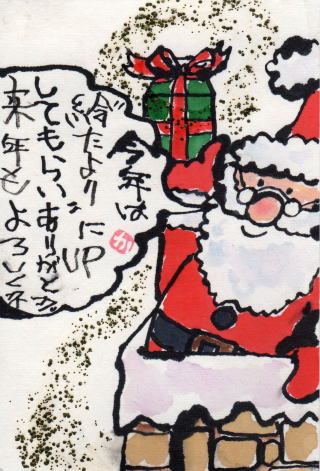 今年は
絵だよりにUP
してもらいありがとう。
来年もよろしくネ